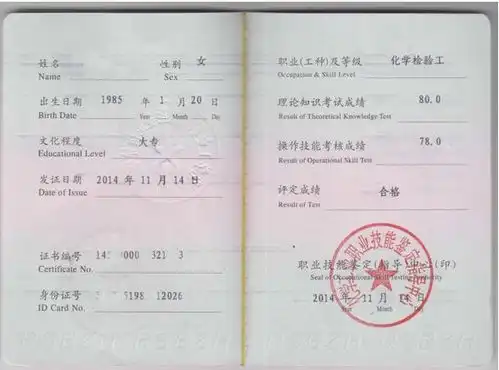 姓名 性别 女
Name Sex
出生日期 1985 年 1 月 20 日
Birth Date Year Month Day
文化程度 大专
Educational Level
发证日期 2014 年 11 月 14 日
Date of Issue
证书编号 000 321 3
Certificate No.
身份证号 5198 12026
ID Card No.
职业(工种)及等级 化学检验工
Occupation & Skill Level
理论知识考试成绩 80.0
Result of Theoretical Knowledge Test
操作技能考核成绩 78.0
Result of Operational Skill Test
评定成绩 合格
Result of Test
职业技能鉴定(指导)中心(印)
Seal of Occupational Skill Testing Authority
2014 年 11 月 14 日
Year Month Day
职业技能鉴定指导中心